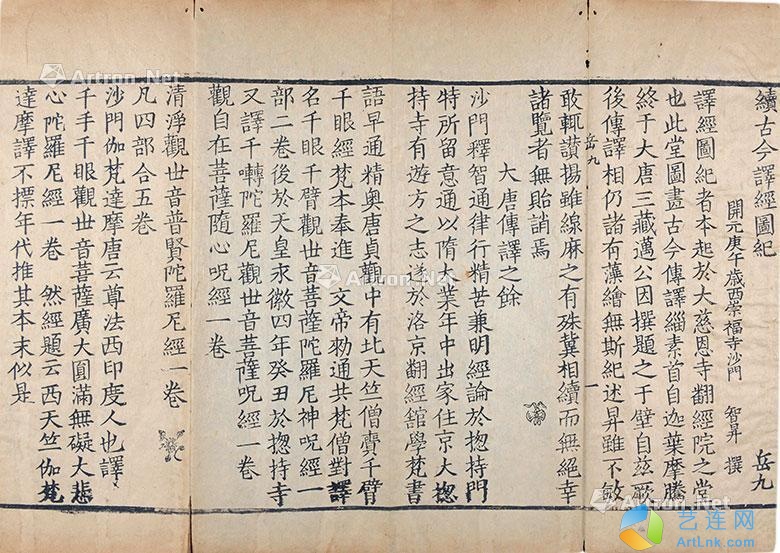 續古今譯經圖紀
岳九
開元庚午歲西崇福寺沙門 智昇 撰
譯經圖紀者本起於大慈恩寺翻經院之堂
也此堂圖畫古今傳譯緇素首自迦葉摩騰
終于大唐三藏邁公因撰題之于壁自茲厥
後傳譯相仍諸有藻繪無斯紀述昇雖不敏
岳九
一
敢輒讚揚雖線麻之有殊冀相續而無絕幸
諸覽者無貽誚焉
大唐傳譯之餘
沙門釋智通律行精苦兼明經論於揔持門
特所留意通以隋大業年中出家住京大揔
持寺有遊方之志遂於洛京翻經舘學梵書
語早通精奧唐貞觀中有北天竺僧賷千臂
千眼經梵本奉進 文帝勑通共梵僧對譯
名千眼千臂觀世音菩薩陀羅尼神呪經一
部二卷後於天皇永徽四年癸丑於揔持寺
又譯千轉陀羅尼觀世音菩薩呪經一卷
觀自在菩薩隨心呪經一卷
清淨觀世音普賢陀羅尼經一卷
凡四部合五卷
沙門伽梵達摩唐云尊法西印度人也譯
千手千眼觀世音菩薩廣大圓滿無礙大悲
心陀羅尼經一卷 然經題云西天竺伽梵
達摩譯不標年代推其本末似是
Artron.Net
Artron.Net
Artron.Net
Artron.Net
Artron.Net
艺连网
ArtLnk.com